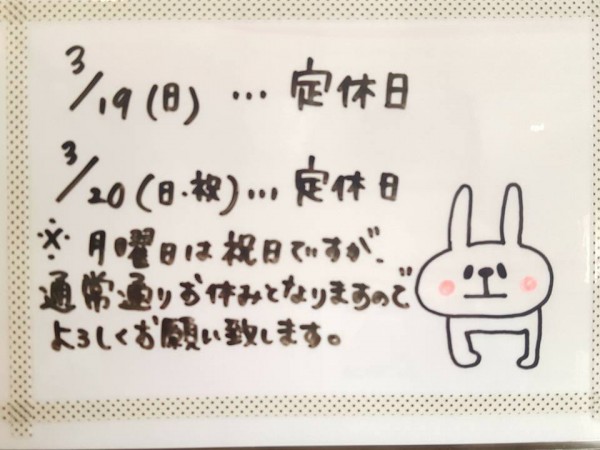 3/19(日)…定休日
3/20(日・祝)…定休日
※月曜日は祝日ですが、
通常通りお休みとなりますので
よろしくお願い致します。